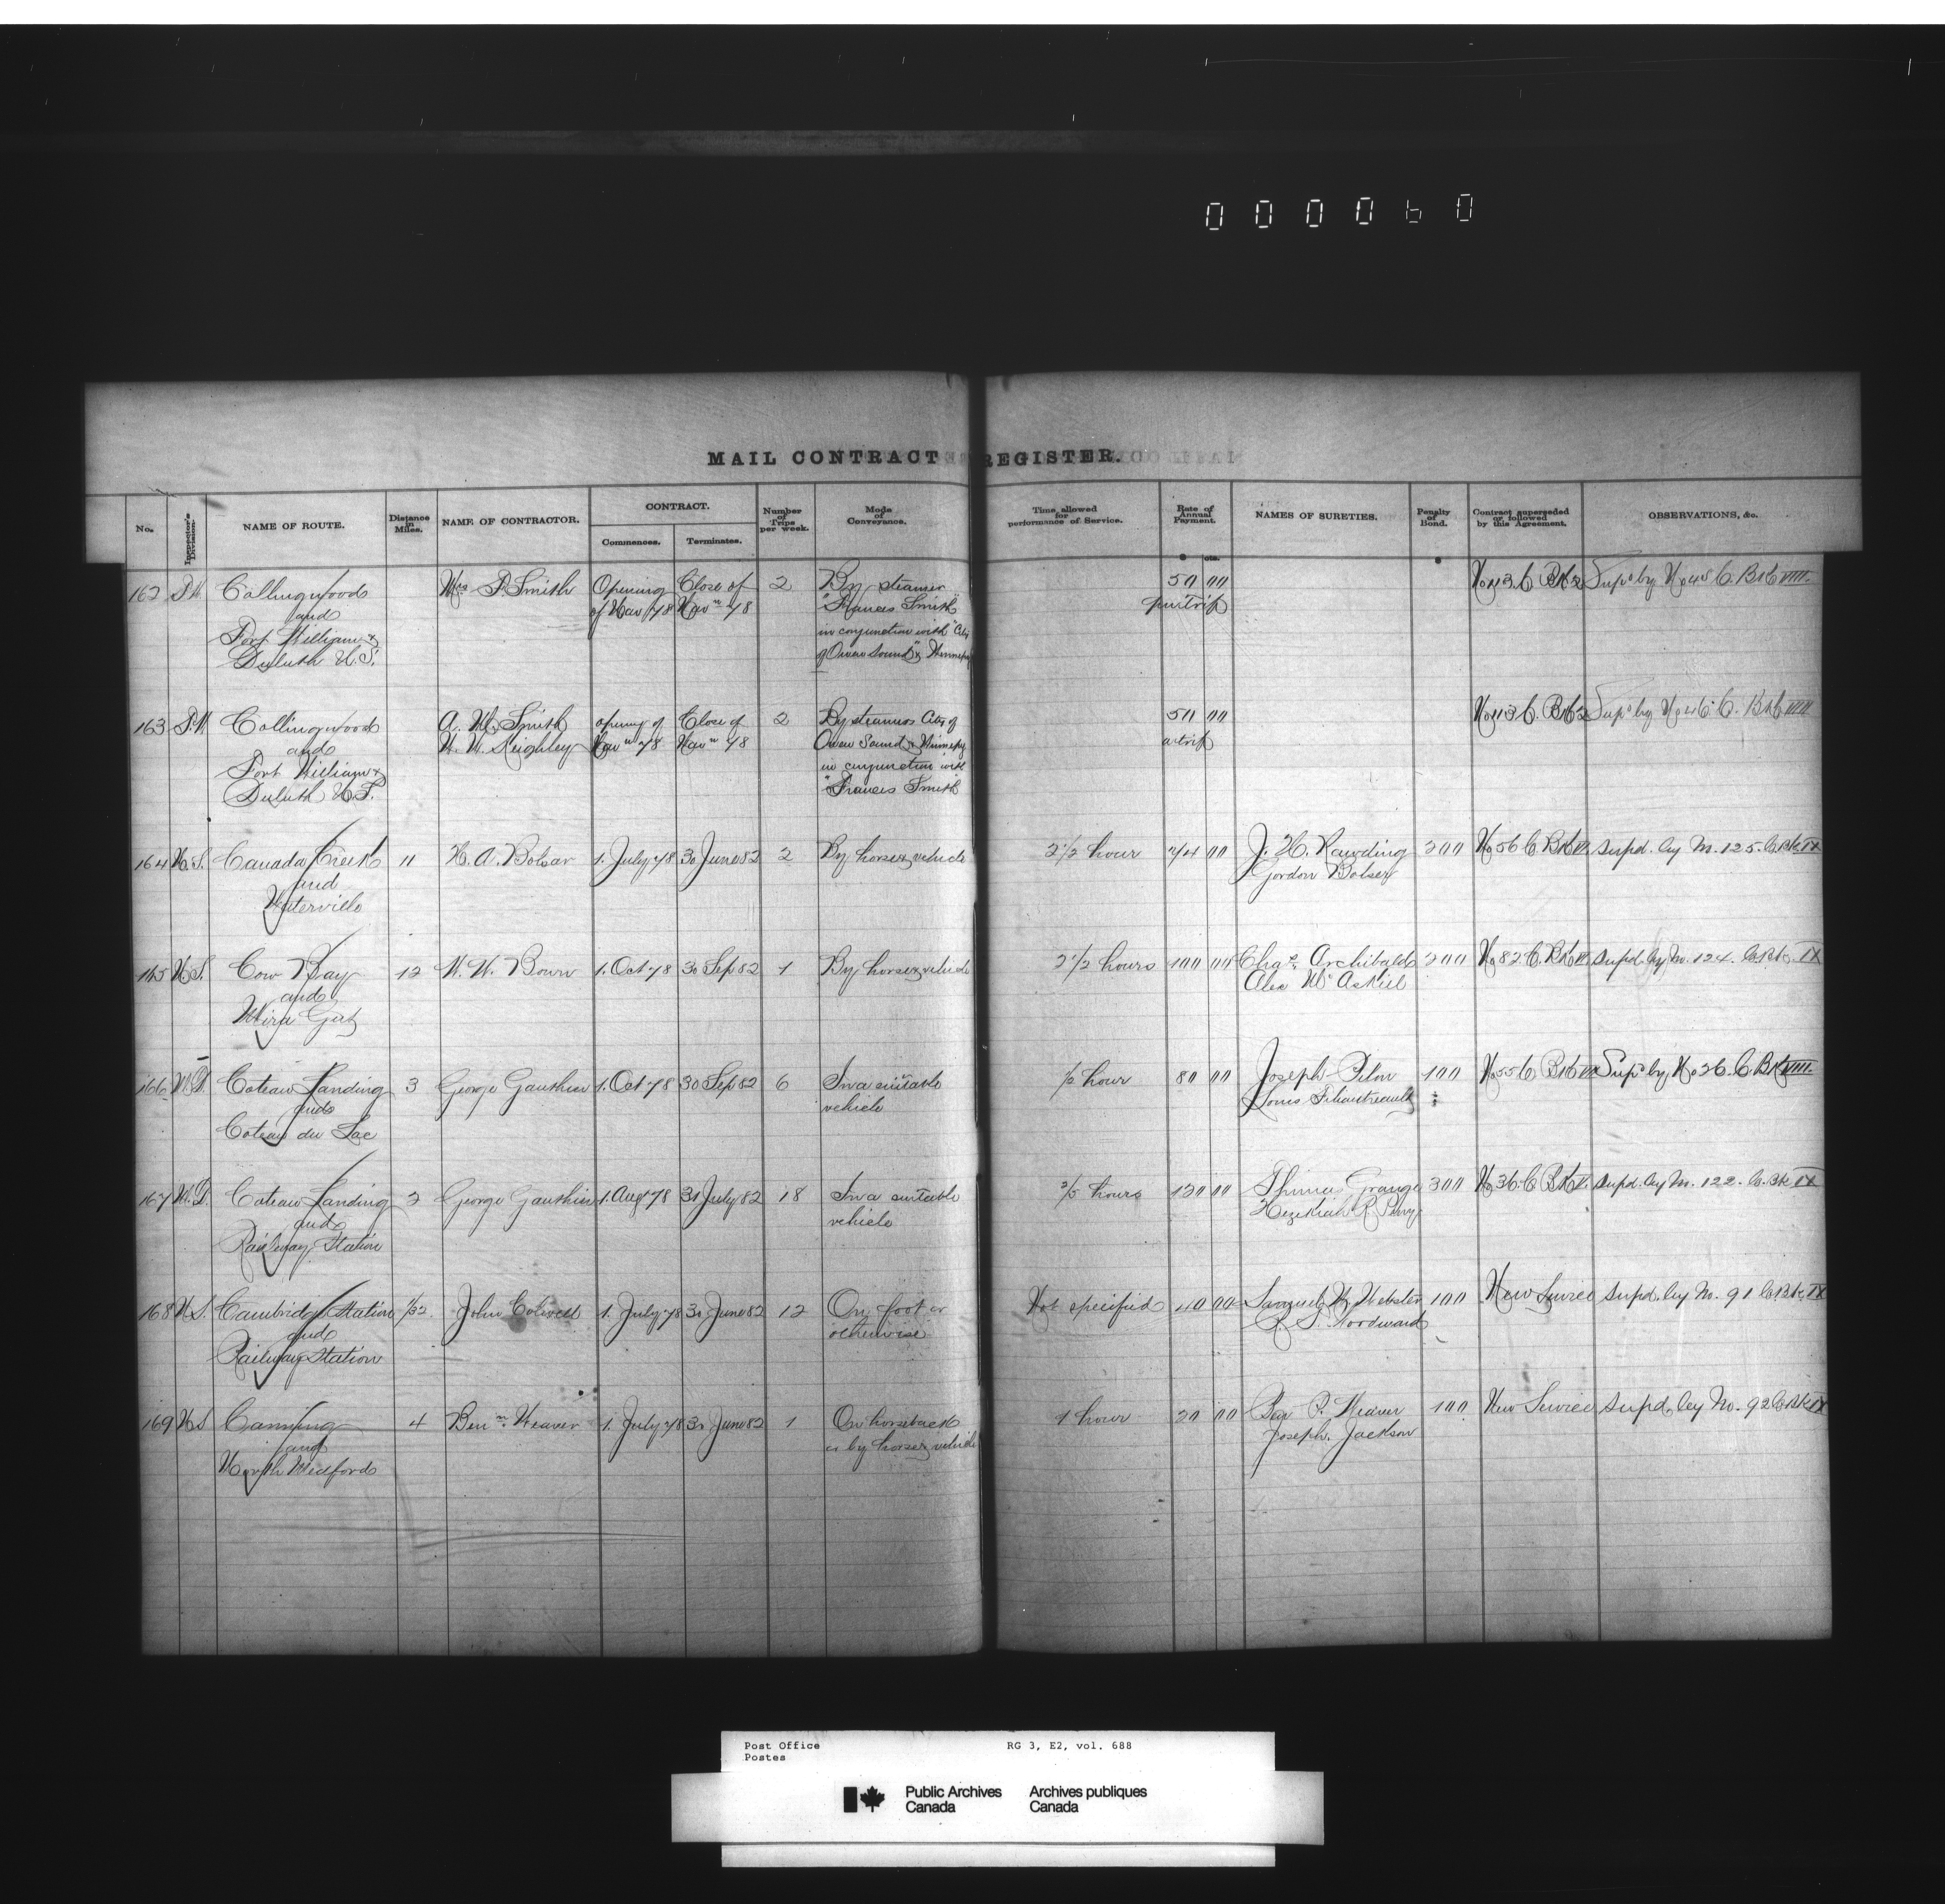 000060
MAIL CONTRACT REGISTER.
No. Inspector's Division. NAME OF ROUTE. Distance in Miles. NAME OF CONTRACTOR. CONTRACT. Commences. Terminates. Number of Trips per week. Mode of Conveyance. Time allowed for performance of Service. Rate of Annual Payment. NAMES OF SURETIES. Penalty of Bond. Contract superseded or followed by this Agreement. OBSERVATIONS, &c.
$ cts. $
162 Collingwood P. Smith Opening Close of 2 By steamer 50 00 No 113 C. Bk
and of Nav 78 Nav n 78 "Frances Smith" per trip
Fort William & in conjunction with "City
Duluth U.S. of Owen Sound" &
163 Collingwood A. M. Smith opening of Close of 2 By steamers City of 50 00 No 113 C. Bk Supd by No 46 C. Bk VIII
and W. H. Keighley Nav n 78 Nav n 78 Owen Sound & a trip
Fort William & in conjunction with
Duluth U.S. "Frances Smith"
164 N.S. Canada Creek 11 1. July 78 30 June 82 2 By horse & vehicle 2 1/2 hour 74 00 J. H. Rawding 200 No 56 C Bk Supd. by No. 125. C. Bk IX
and Gordon Bolser
Waterville
165 N.S. Cow Bay 12 1. Oct 78 30 Sep 82 1 By horse & vehicle 2 1/2 hours 100 00 Chas. Archibald 200 No 82 C. Bk Supd. by No. 124. C. Bk. IX
and Alex McAskill
Mira Gut
166 M.D. Coteau Landing 3 George Gauthier 1. Oct 78 30 Sep 82 6 In a suitable 1/2 hour 80 00 Joseph Pilon 100 No 55 C Bk Supd by No 26. C. Bk VIII
and vehicle Louis
Coteau du Lac
167 M.D. Coteau Landing 2 George Gauthier 1. Aug 78 31 July 82 18 In a suitable hours 120 00 Grange 300 No 36. C Bk Supd. by No. 122. C. Bk IX
and vehicle Hezekiah R. Perry
Railway Station
168 N.S. Cambridge Station 1/32 John 1. July 78 30 June 82 12 On foot or Not specified 40 00 Samuel W. Webster 100 New Service Supd. by No. 91 C. Bk. IX
and otherwise R. S. Woodward
Railway Station
169 N.S. Canning 4 Ben n Weaver 1. July 78 30 June 82 1 On horseback 1 hour 20 00 P. Weaver 100 New Service Supd. by No. 92 C. Bk IX
and or by horse & vehicle Joseph Jackson
North Medford
Post Office RG 3, E2, vol. 688
Postes
Public Archives Archives publiques
Canada Canada